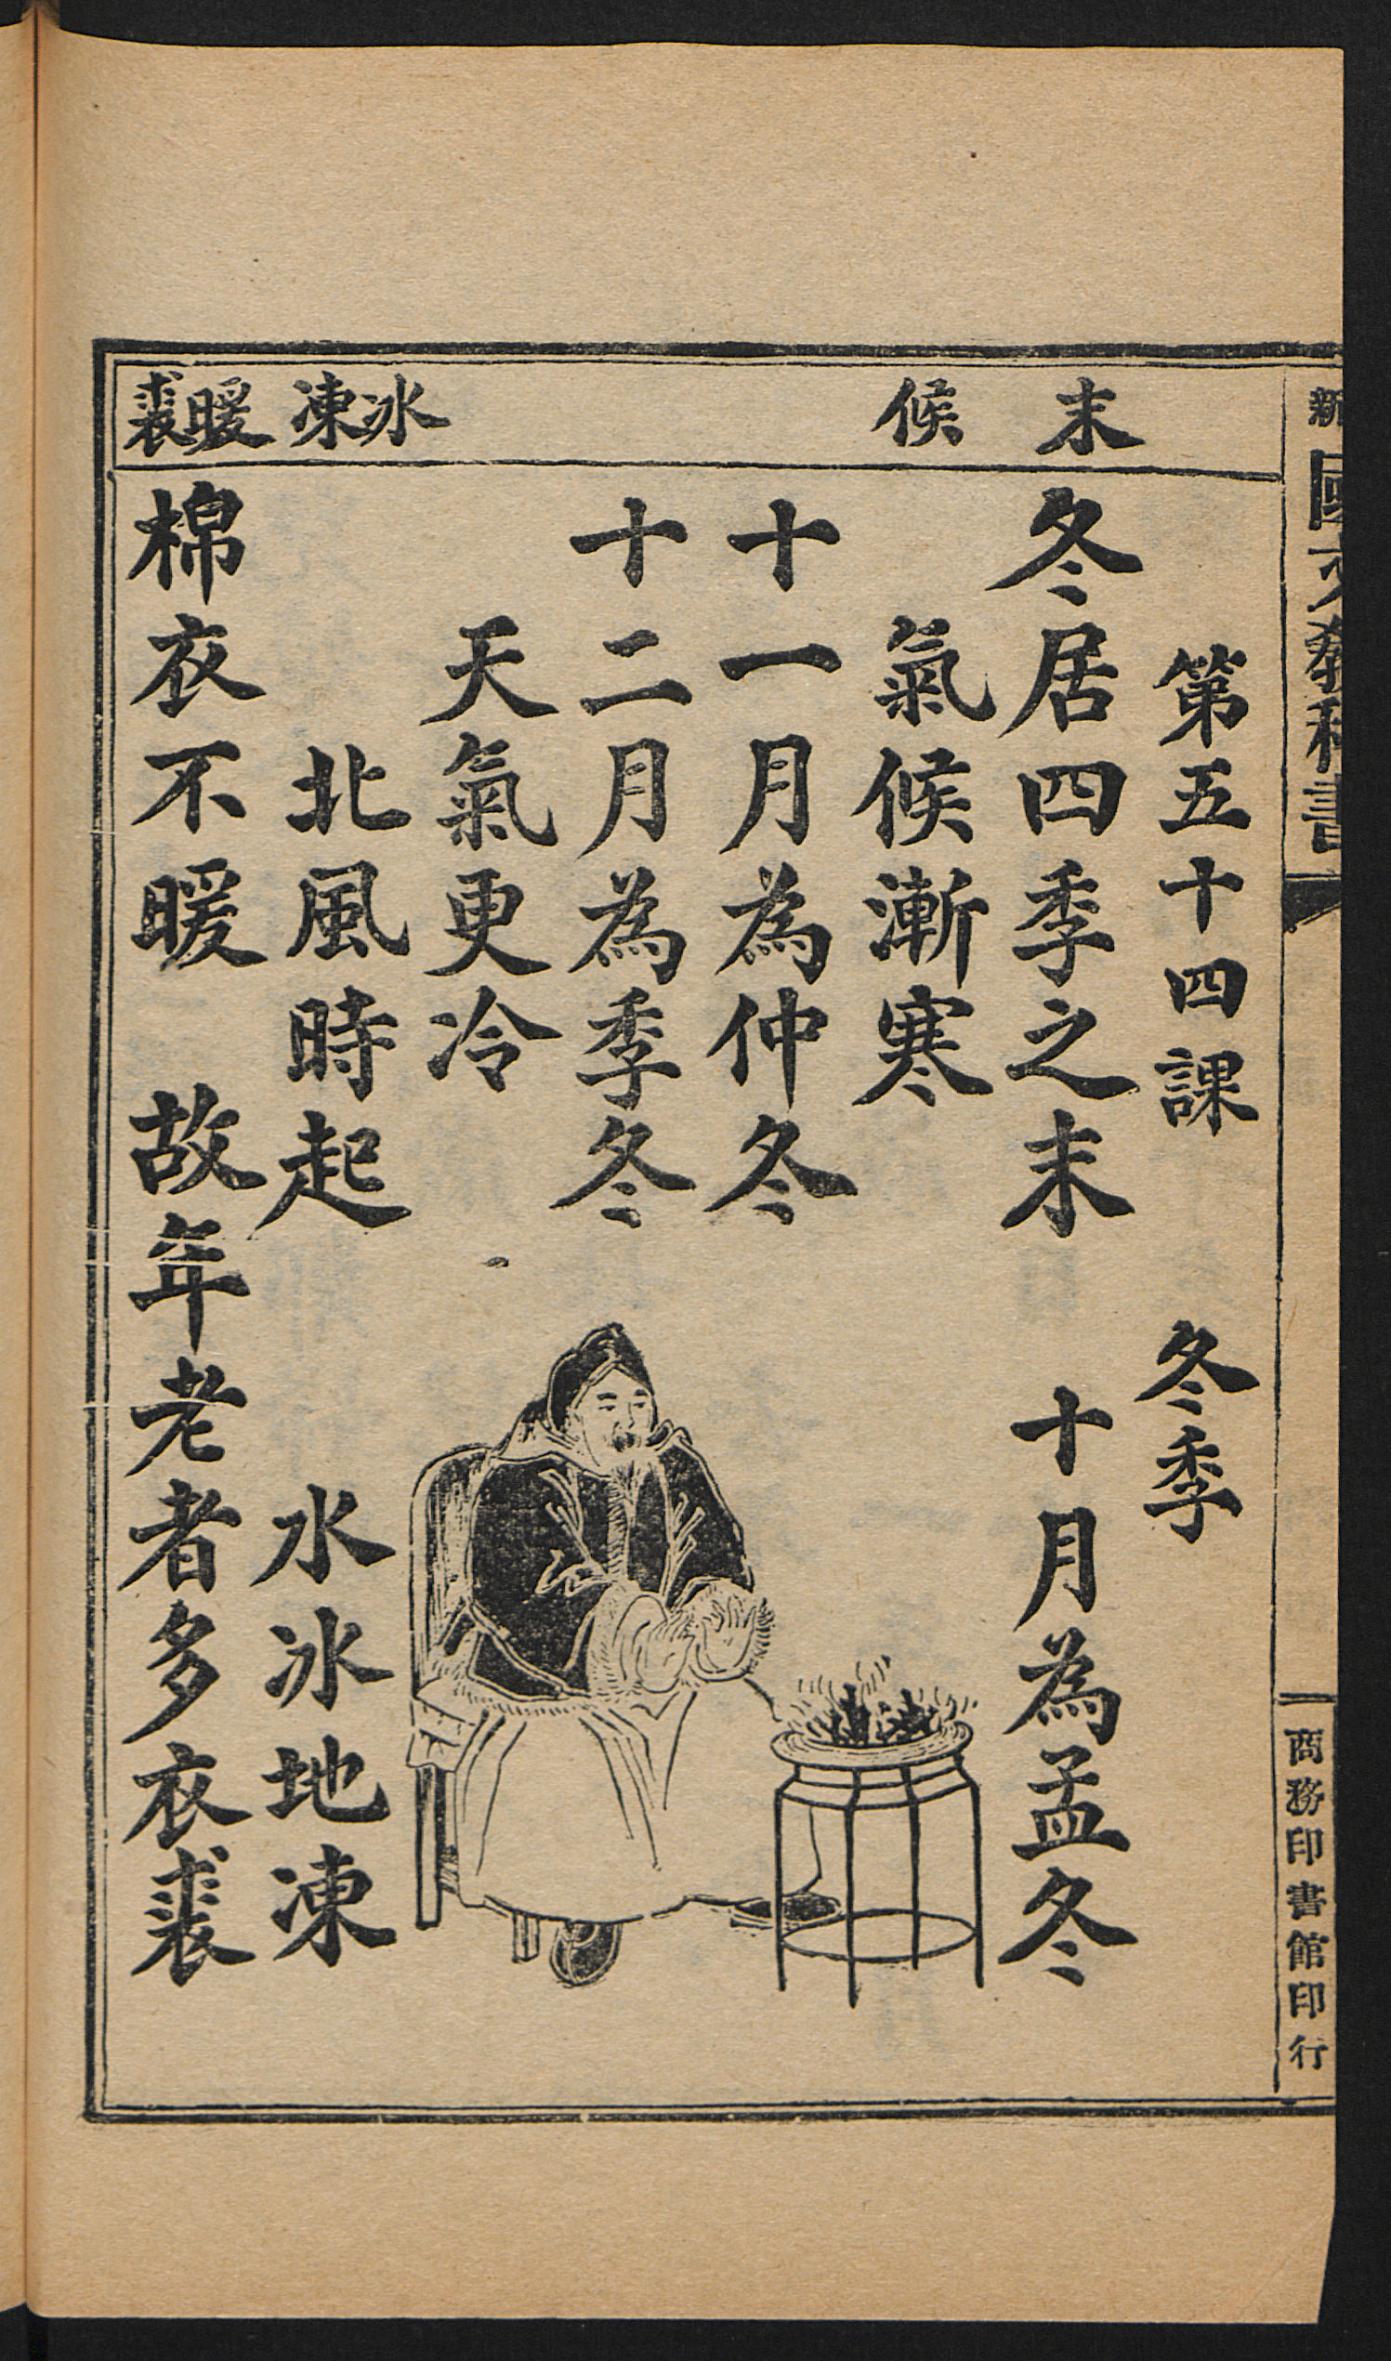 新國文教科書
商務印書館印行
末
候
冰
凍
暖
裘
第五十四課 冬季
冬居四季之末 十月為孟冬
氣候漸寒
十一月為仲冬
十二月為季冬
天氣更冷
北風時起 水冰地凍
棉衣不暖 故年老者多衣裘